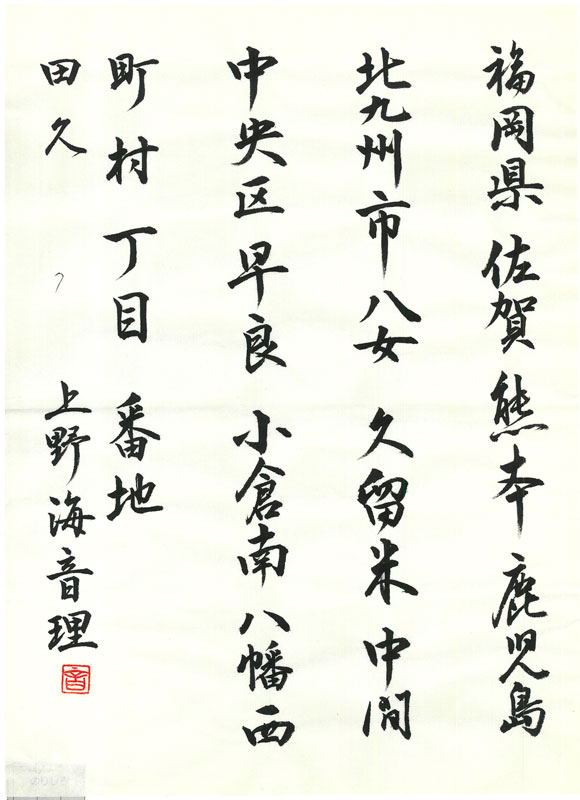 福岡県 佐賀 熊本 鹿児島
北九州市 八女 久留米 中間
中央区 早良 小倉南 八幡西
町村 丁目 番地
田久 上野海音理
音